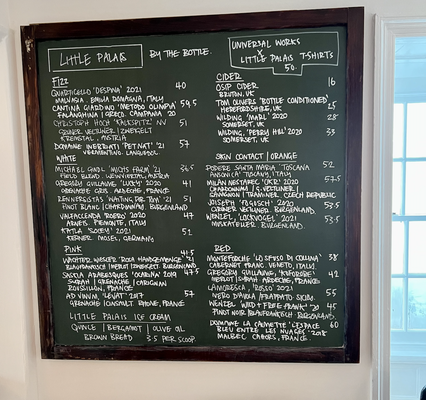 LITTLE PALAIS
BY THE BOTTLE.
UNIVERSAL WORKS
X
LITTLE PALAIS T-SHIRTS
50.
FIZZ
QUARTICELLO 'DESPINA' 2021 40
MALVASIA EMILIA ROMAGNA, ITALY
CANTINA GIARDINO 'METODO OLIMPIA' 59.5
FALANGHINA | GRECO, CAMPANIA 20
CHRISTOPH HOCH 'KALKSPITZ' NV 51
GRUNER VELTLINER | ZWEIGELT
KREMSTAL, AUSTRIA
DOMAINE 'PET NAT' '21 57
VERMENTINO, LANGUEDOC
WHITE
MICHAEL GINDL 36.5
FIELD BLEND, WEINVIERTEL, AUSTRIA
GREGORY GUILLAUME, 'LUCKY' 2020 41
GRENACHE GRIS, ARDECHE, FRANCE
RENNERSISTAS 'WAITING FOR TOM' '21 51
PINOT BLANC | CHARDONNAY BURGENLAND
VALFACCENDA ROERO' 2020 47
ARNEIS, PIEMONTE, ITALY
KATLA 'SOLEY' 2021 52
KERNER, MOSEL, GERMANY
PINK
WACHTER WIESLER, 'ROSA HANDGEMENGE' '21 41.5
BLAUFRANKISCH | MERLOT | ZWEIGELT, BURGENLAND
SASKIA ARABESQUES 2019 47.5
SYRAH | GRENACHE | CARIGNAN
ROUSSILLON, FRANCE
AD VINUM, 'LEVAT' 2017 57
GRENACHE | CINSAULT, RHONE, FRANCE
LITTLE PALAIS ICE CREAM
QUINCE | BERGAMOT | OLIVE OIL
BROWN BREAD 3.5 PER SCOOP.
CIDER
OSIP CIDER 16
BRUTON, UK
TOM OLIVERS 'BOTTLE CONDITIONED' 25
HEREFORDSHIRE, UK
WILDING, 'MARL' 2020 28
SOMERSET, UK
WILDING, 'PERRY HILL' 2020 33
SOMERSET, UK
SKIN CONTACT | ORANGE
PODERE SANTA MARIA 'TOSCANA' 52
TUSCANY, ITALY
MILAN NESTAREC 'OKR' 2020 57.5
CHARDONNAY | G. VELTLINER |
TRAMINER, CZECH REPUBLIC
JOISEPH 'FOGOSCH' 2020 53.5
GRUNER VELTLINER BURGENLAND.
WENZEL, 'LOCKVOGEL' 2021 53.5
MUSCATELLER BURGENLAND.
RED
MONTEFORCHE 'LO SFUSO DI COLLINA' 38
CABERNET FRANC, VENETO, ITALY
GREGORY GUILLAUME, 42
MERLOT | SYRAH ARDECHE, FRANCE
LAMORESCA, 'ROSSO' 2021 55
NERO D'AVOLA | FRAPPATO SICILY.
WENZEL 'WILD + FREE FRANK' '20 45
PINOT NOIR | BLAUFRANKISCH BURGENLAND.
DOMAINE LA CALMETTE 'L'ESPACE 60
BLEU ENTRE LES NUAGES' '2018
MALBEC CAHORS, FRANCE.